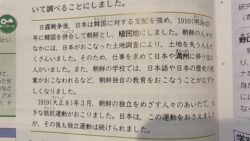 いて調べることにしました。
日露戦争後、日本は韓国に対する支配を強め、1910(明治43)
年に韓国を併合して朝鮮とし、植民地にしました。朝鮮の人々の
なかには、日本がおこなった土地調査により、土地を失う人も
いました。そのため、仕事を求めて日本や満州に移り住む
人もいました。また、朝鮮の学校では、日本語や日本の歴史の授
業がおこなわれるなど、朝鮮独自の教育をおこなうことがむずか
しくなりました。
1919(大正8)年3月、朝鮮の独立をめざす人々のあいだで、大
きな抵抗運動がおこりました。日本は、この運動をおさえました
が、その後も独立運動は続けられました。